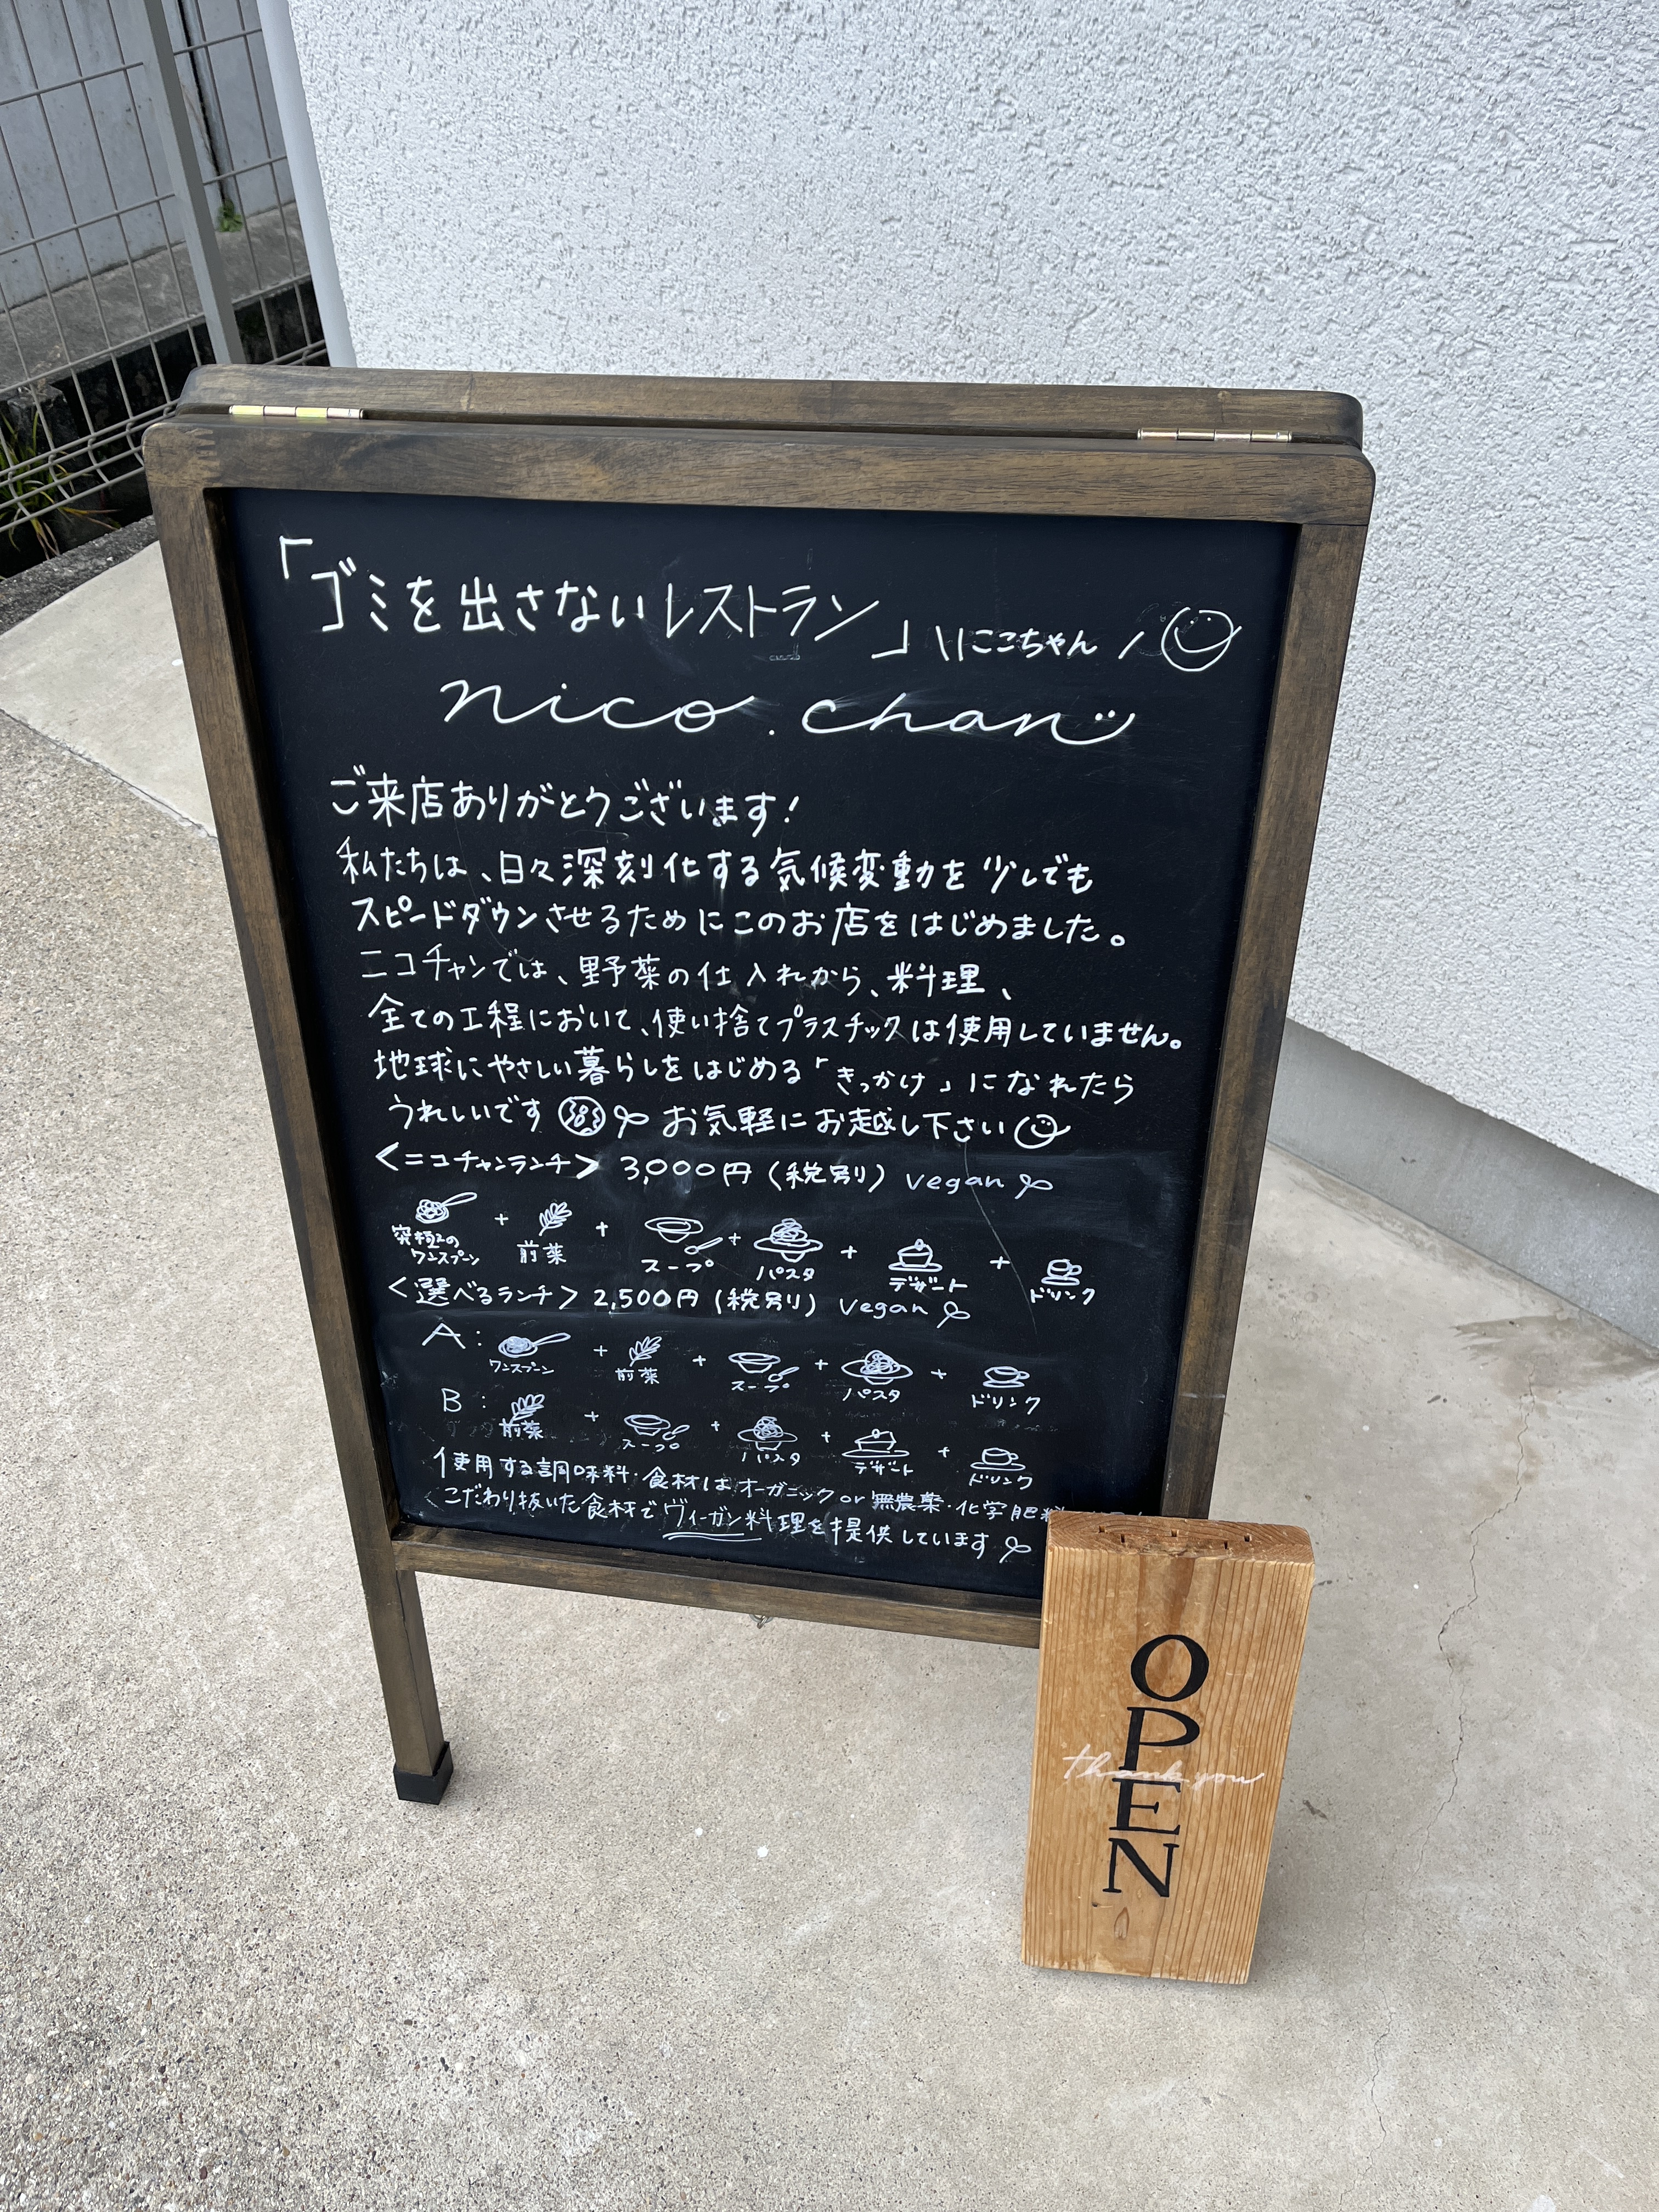 「ゴミを出さないレストラン」\\にこちゃん/
nico.chan
ご来店ありがとうございます!
私たちは、日々深刻化する気候変動を少しでも
スピードダウンさせるためにこのお店をはじめました。
ニコチャンでは、野菜の仕入れから、料理、
全ての工程において、使い捨てプラスチックは使用していません。
地球にやさしい暮らしをはじめる「きっかけ」になれたら
うれしいです お気軽にお越し下さい
<ニコチャンランチ> 3,000円(税別) vegan
究極のワンスプーン + 前菜 + スープ + パスタ + デザート + ドリンク
<選べるランチ> 2,500円(税別) vegan
A: ワンスプーン + 前菜 + スープ + パスタ + ドリンク
B: 前菜 + スープ + パスタ + デザート + ドリンク
使用する調味料・食材はオーガニック or 無農薬・化学肥料
こだわり抜いた食材でヴィーガン料理を提供しています
OPEN
thank you